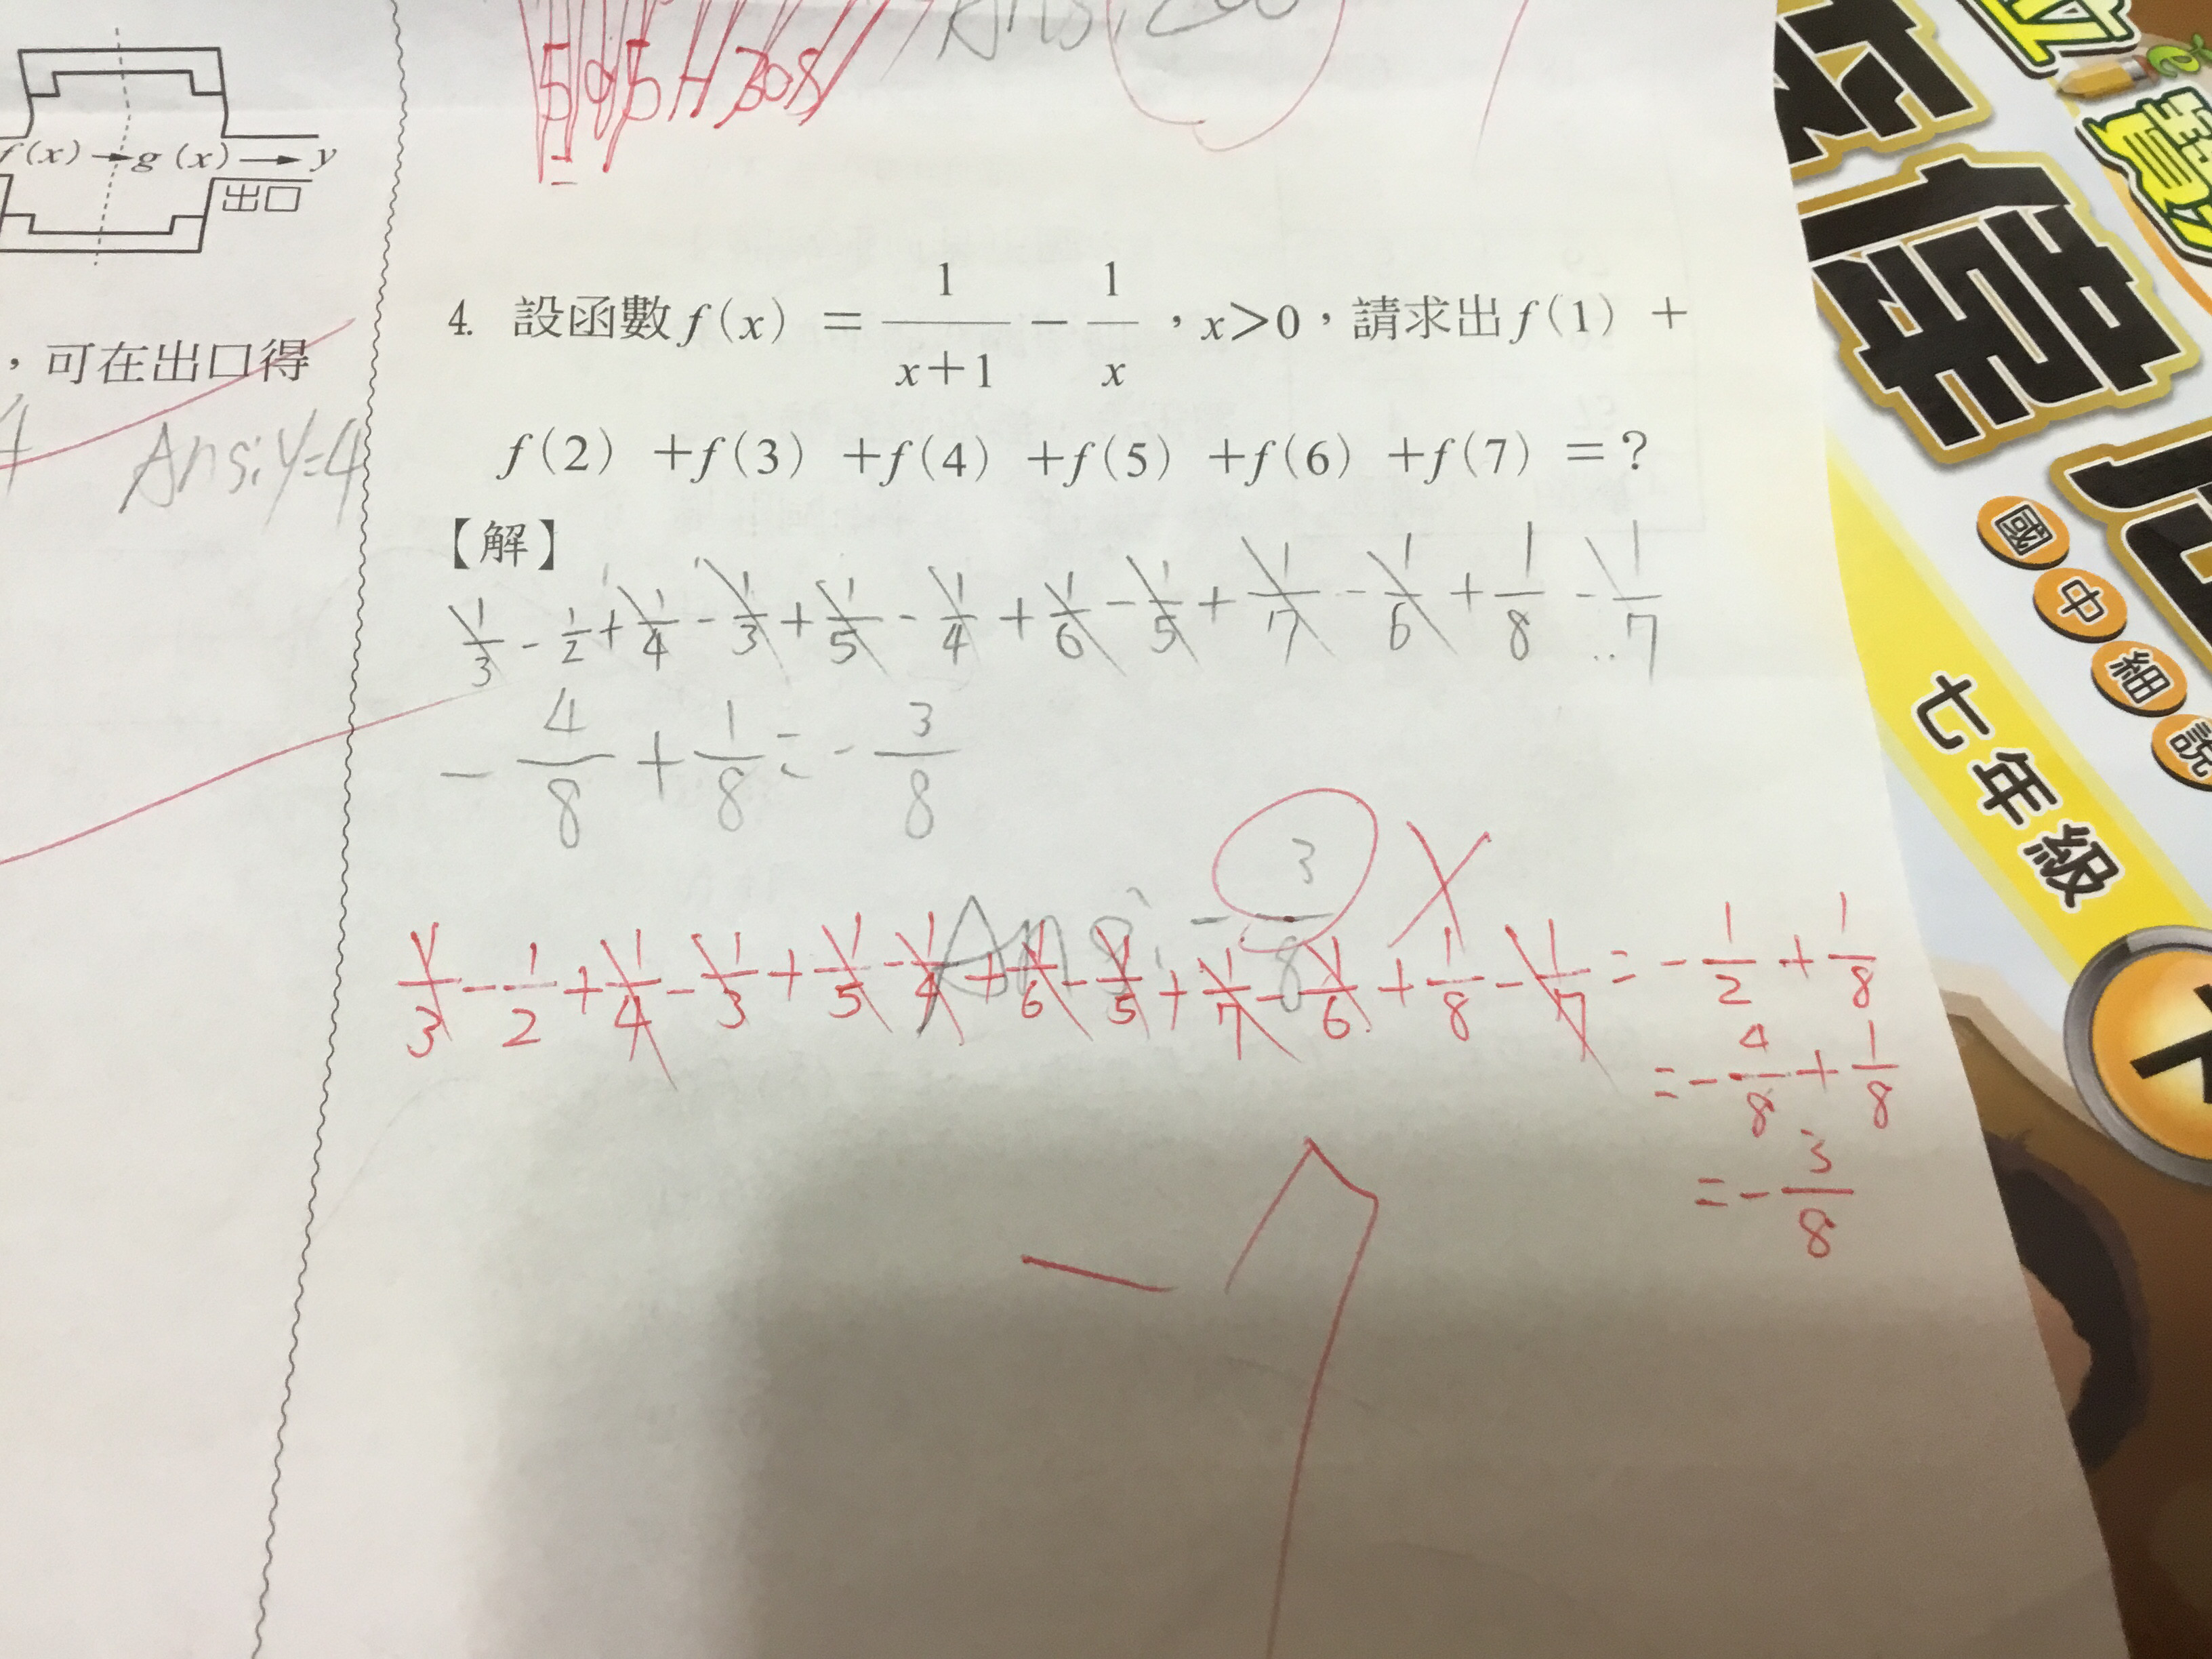 Ans: 200
f(x)→g(x)→y
出口
，可在出口得
4 Ans: y=4
4. 設函數 f(x) = 1/(x+1) - 1/x ，x>0，請求出 f(1) +
f(2) +f(3) +f(4) +f(5) +f(6) +f(7) =？
【解】
1/3 - 1/2 + 1/4 - 1/3 + 1/5 - 1/4 + 1/6 - 1/5 + 1/7 - 1/6 + 1/8 - 1/7
- 4/8 + 1/8 = - 3/8
Ans: - 3/8
1/3 - 1/2 + 1/4 - 1/3 + 1/5 - 1/4 + 1/6 - 1/5 + 1/7 - 1/6 + 1/8 - 1/7 = - 1/2 + 1/8
= - 4/8 + 1/8
= - 3/8
國中細說
七年級